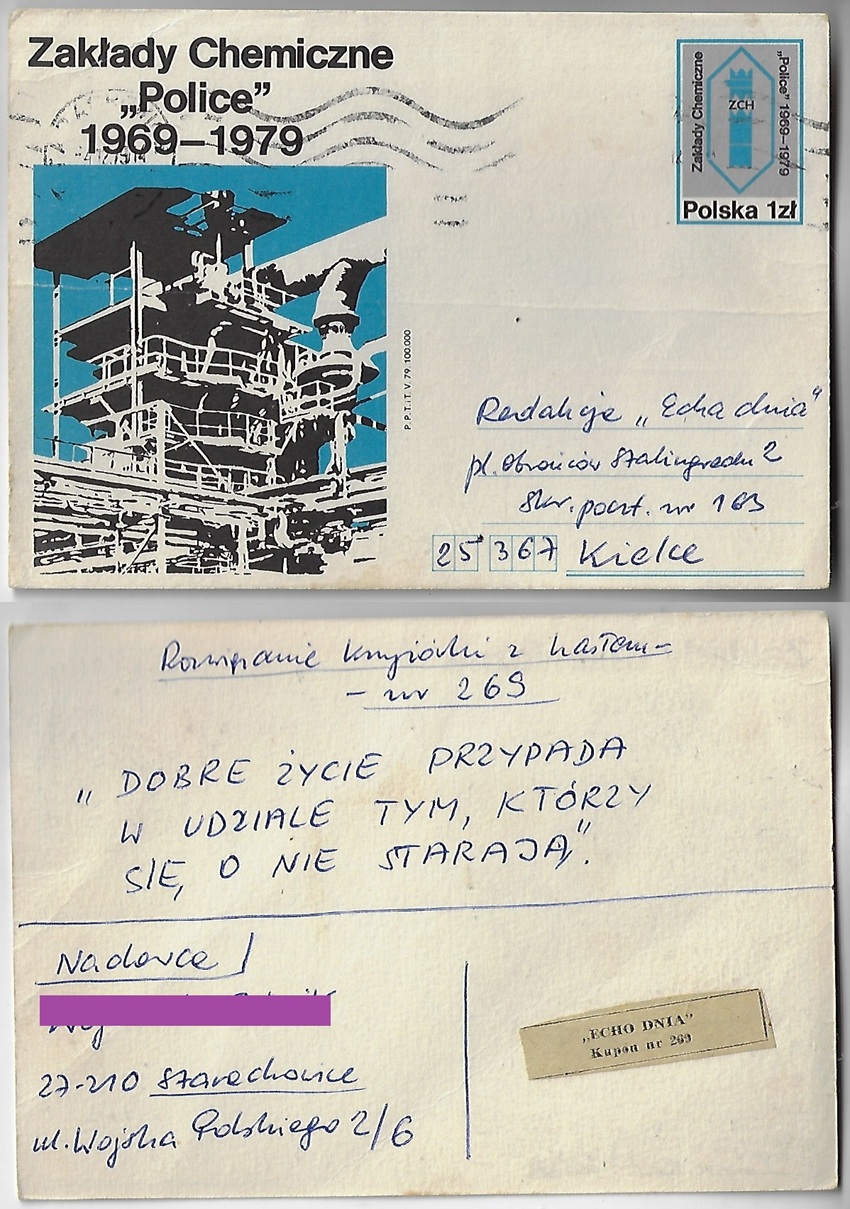 Zakłady Chemiczne
„Police”
1969–1979
Zakłady Chemiczne
„Police” 1969–1979
ZCH
Polska 1zł
P.P.T.iT. V. 79. 100.000
Redakcja „Echa dnia"
pl. Obrońców Stalingradu 2
skr. poczt. nr 163
25 367 Kielce
Rozwiązanie krzyżówki z hasłem -
- nr 269
„DOBRE ŻYCIE PRZYPADA
W UDZIALE TYM, KTÓRZY
SIĘ O NIE STARAJĄ".
Nadawca
27-210 Starachowice
ul. Wojska Polskiego 2/6
„ECHO DNIA”
Kupon nr 269